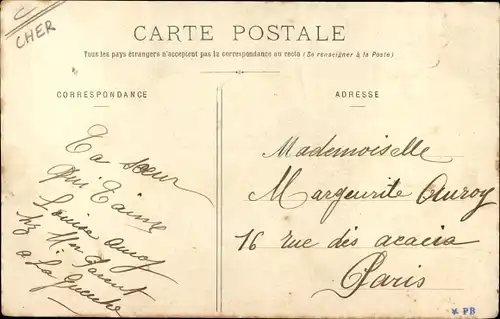 C
CHER
CARTE POSTALE
Tous les pays étrangers n'acceptent pas la correspondance au recto (Se renseigner à la Poste)
CORRESPONDANCE
Ta sœur
qui t'aime
Louise Auroy
à La
ADRESSE
Mademoiselle
Margeurite Auroy
16 rue des acacia
Paris
* PB